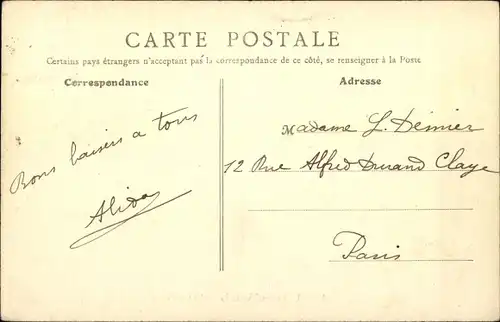 CARTE POSTALE
Certains pays étrangers n'acceptant pas la correspondance de ce côté, se renseigner à la Poste
Correspondance
Adresse
Bons baisers a tous
Alida
Madame L. Deinier
12 Rue Alfred Durand Claye
Paris